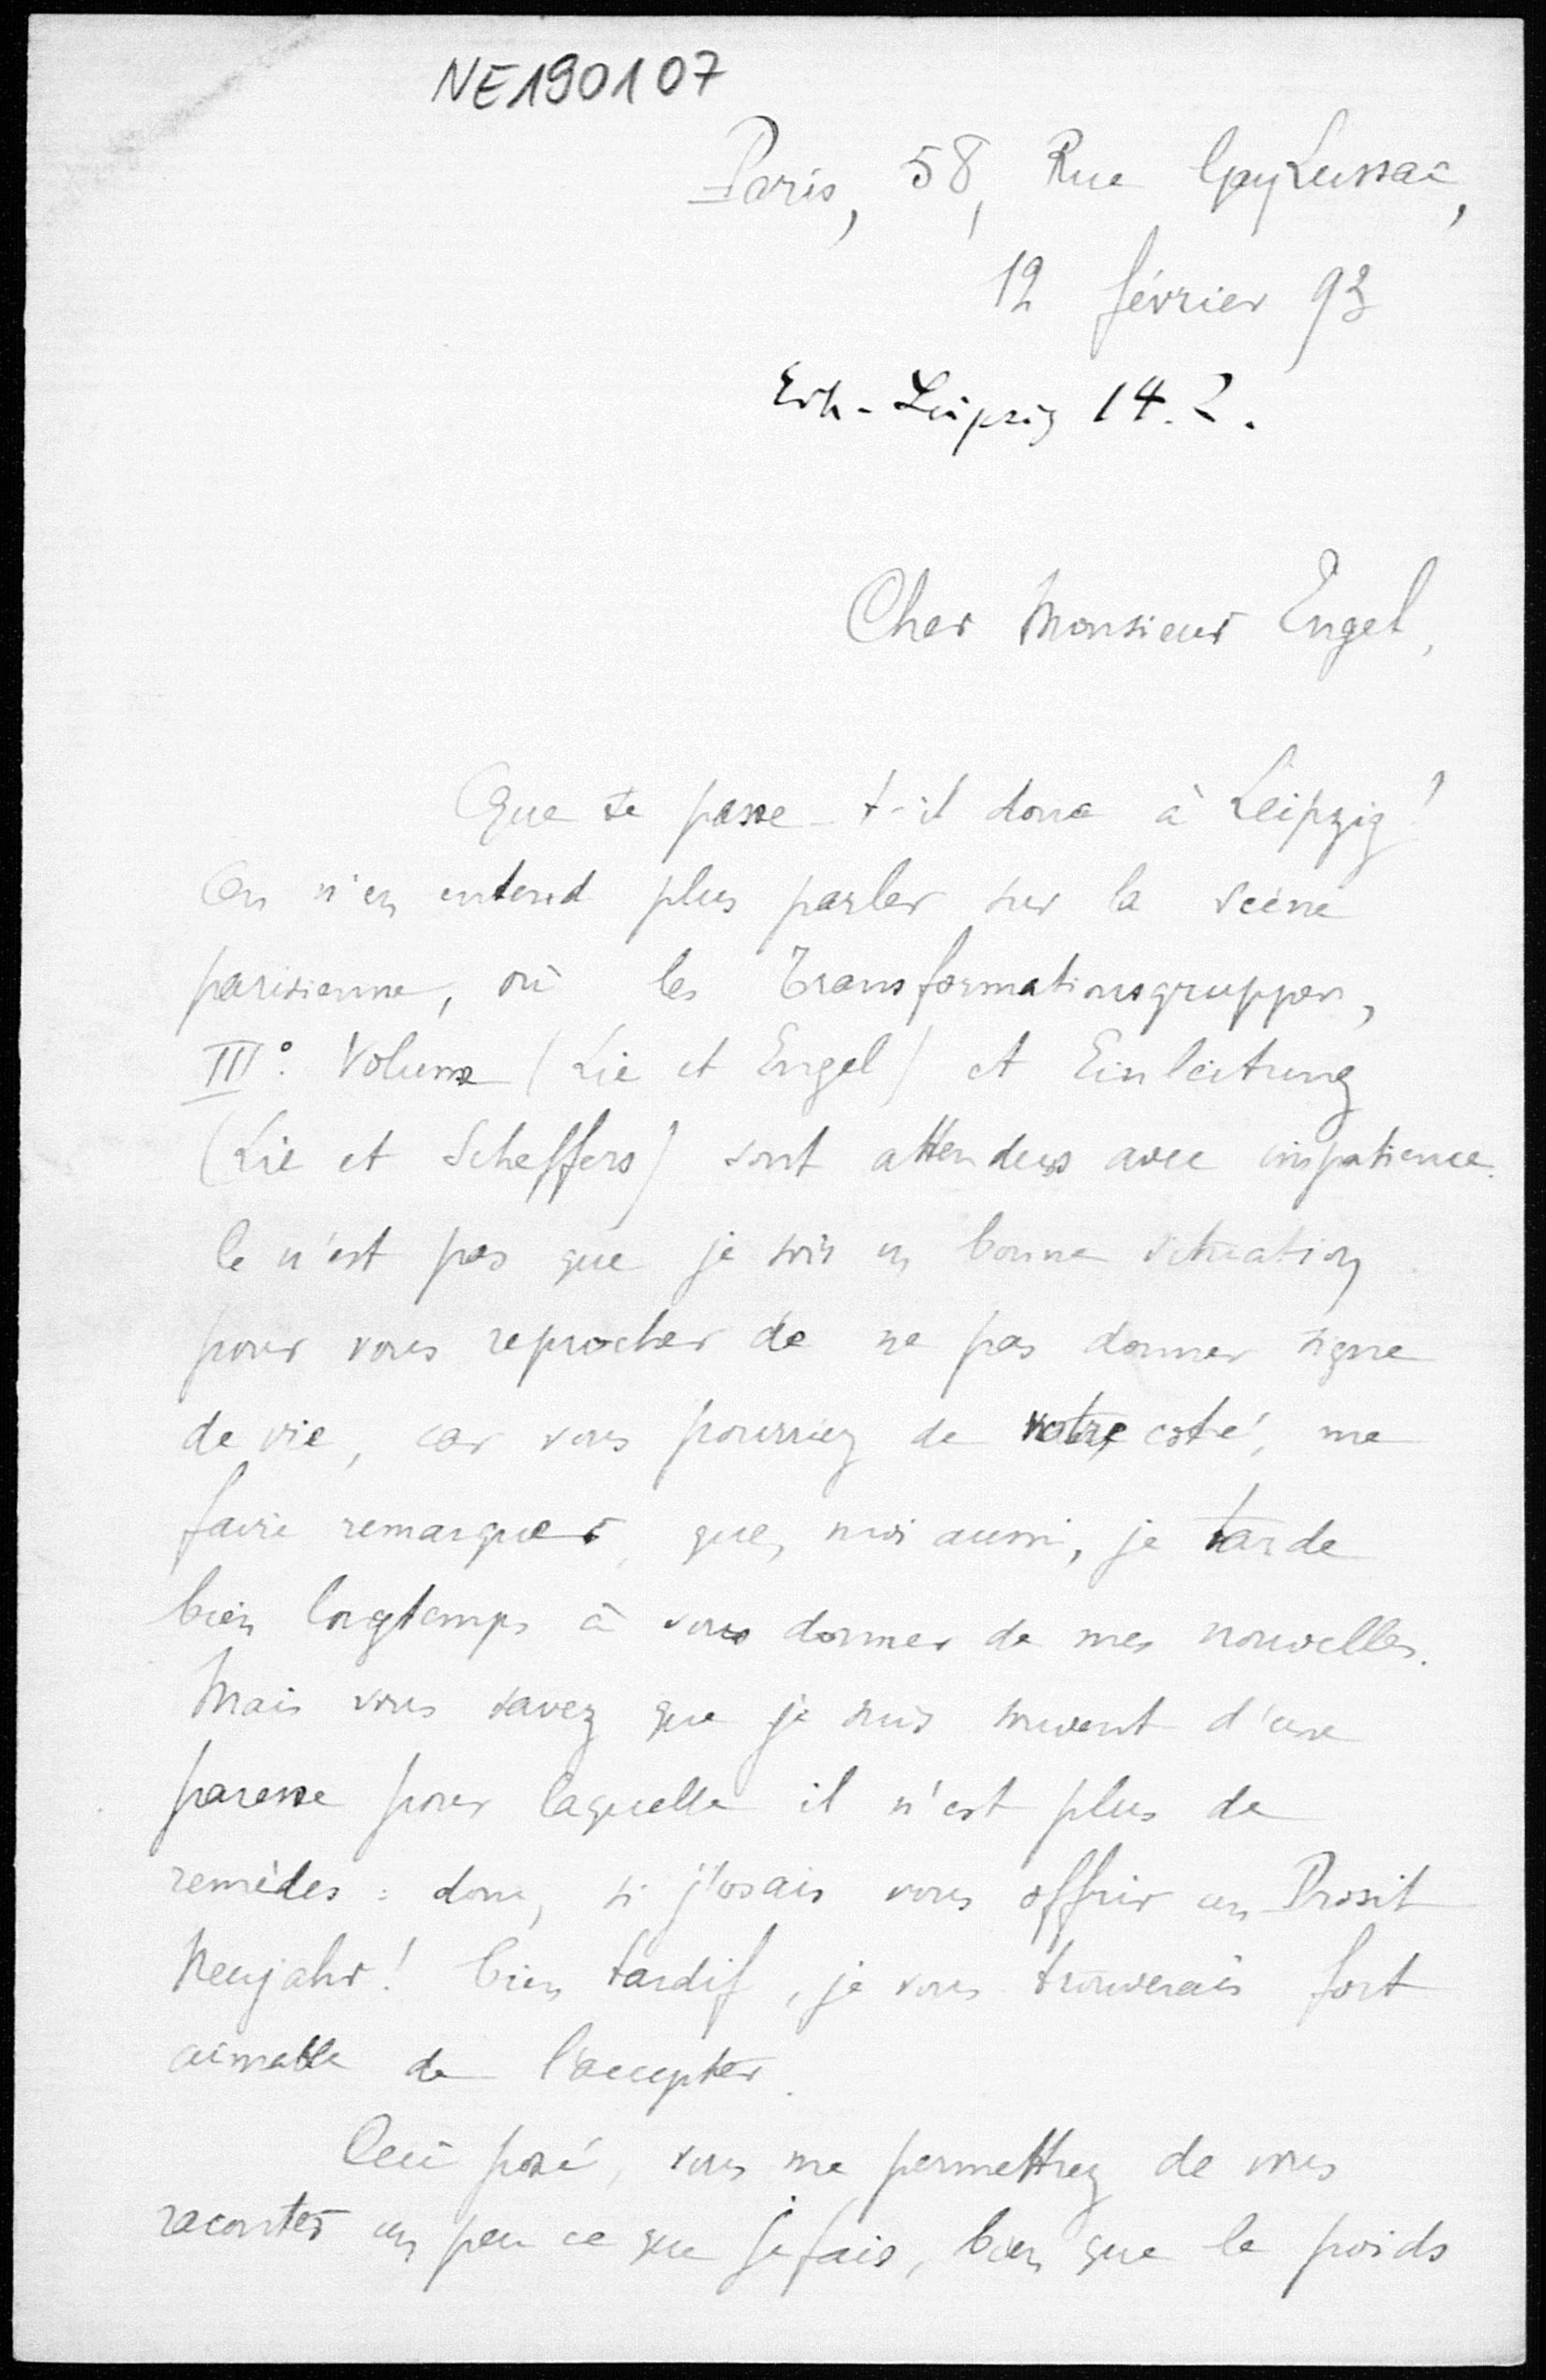 NE190107
Paris, 58, Rue Gay Lussac,
12 février 93
Erh - Leipzig 14. 2.
Cher Monsieur Engel,
Que se passe-t-il donc à Leipzig!
On n'en entend plus parler sur la scène
parisienne, où les Transformationsgruppen,
III°. Volume (Lie et Engel) et Einleitung
(Lie et Scheffers) sont attendus avec impatience.
Ce n'est pas que je sois en bonne situation
pour vous reprocher de ne pas donner signe
de vie, car vous pourriez de votre coté, me
faire remarquer, que, moi aussi, je tarde
bien longtemps à vous donner de mes nouvelles.
Mais vous savez que je suis souvent d'une
paresse pour laquelle il n'est plus de
remèdes : donc, si j'osais vous offrir un Prosit
Neujahr! bien tardif, je vous trouverais fort
aimable de l'accepter.
Ceci posé, vous me permettrez de vous
raconter un peu ce que je fais, bien que le poids